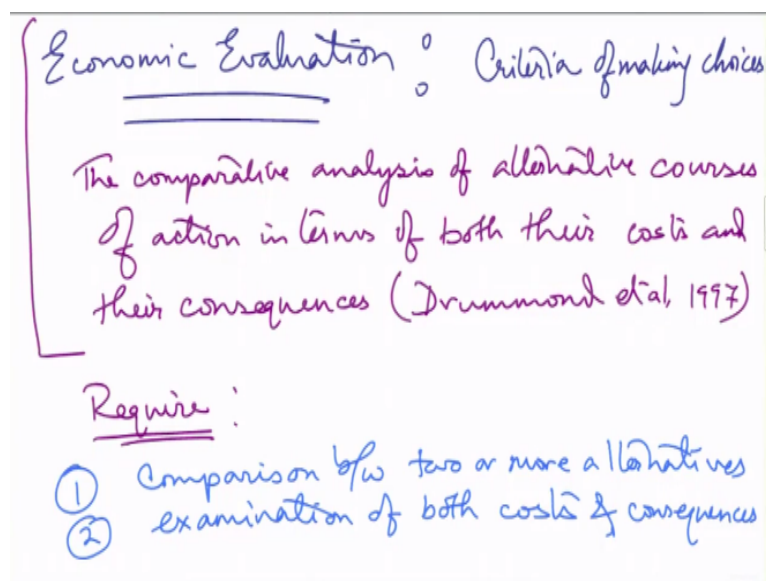 Economic Evaluation : Criteria of making choices
The comparative analysis of alternative courses
of action in terms of both their costs and
their consequences (Drummond et al, 1997)
Require :
① Comparison b/w two or more alternatives
② examination of both costs & consequences